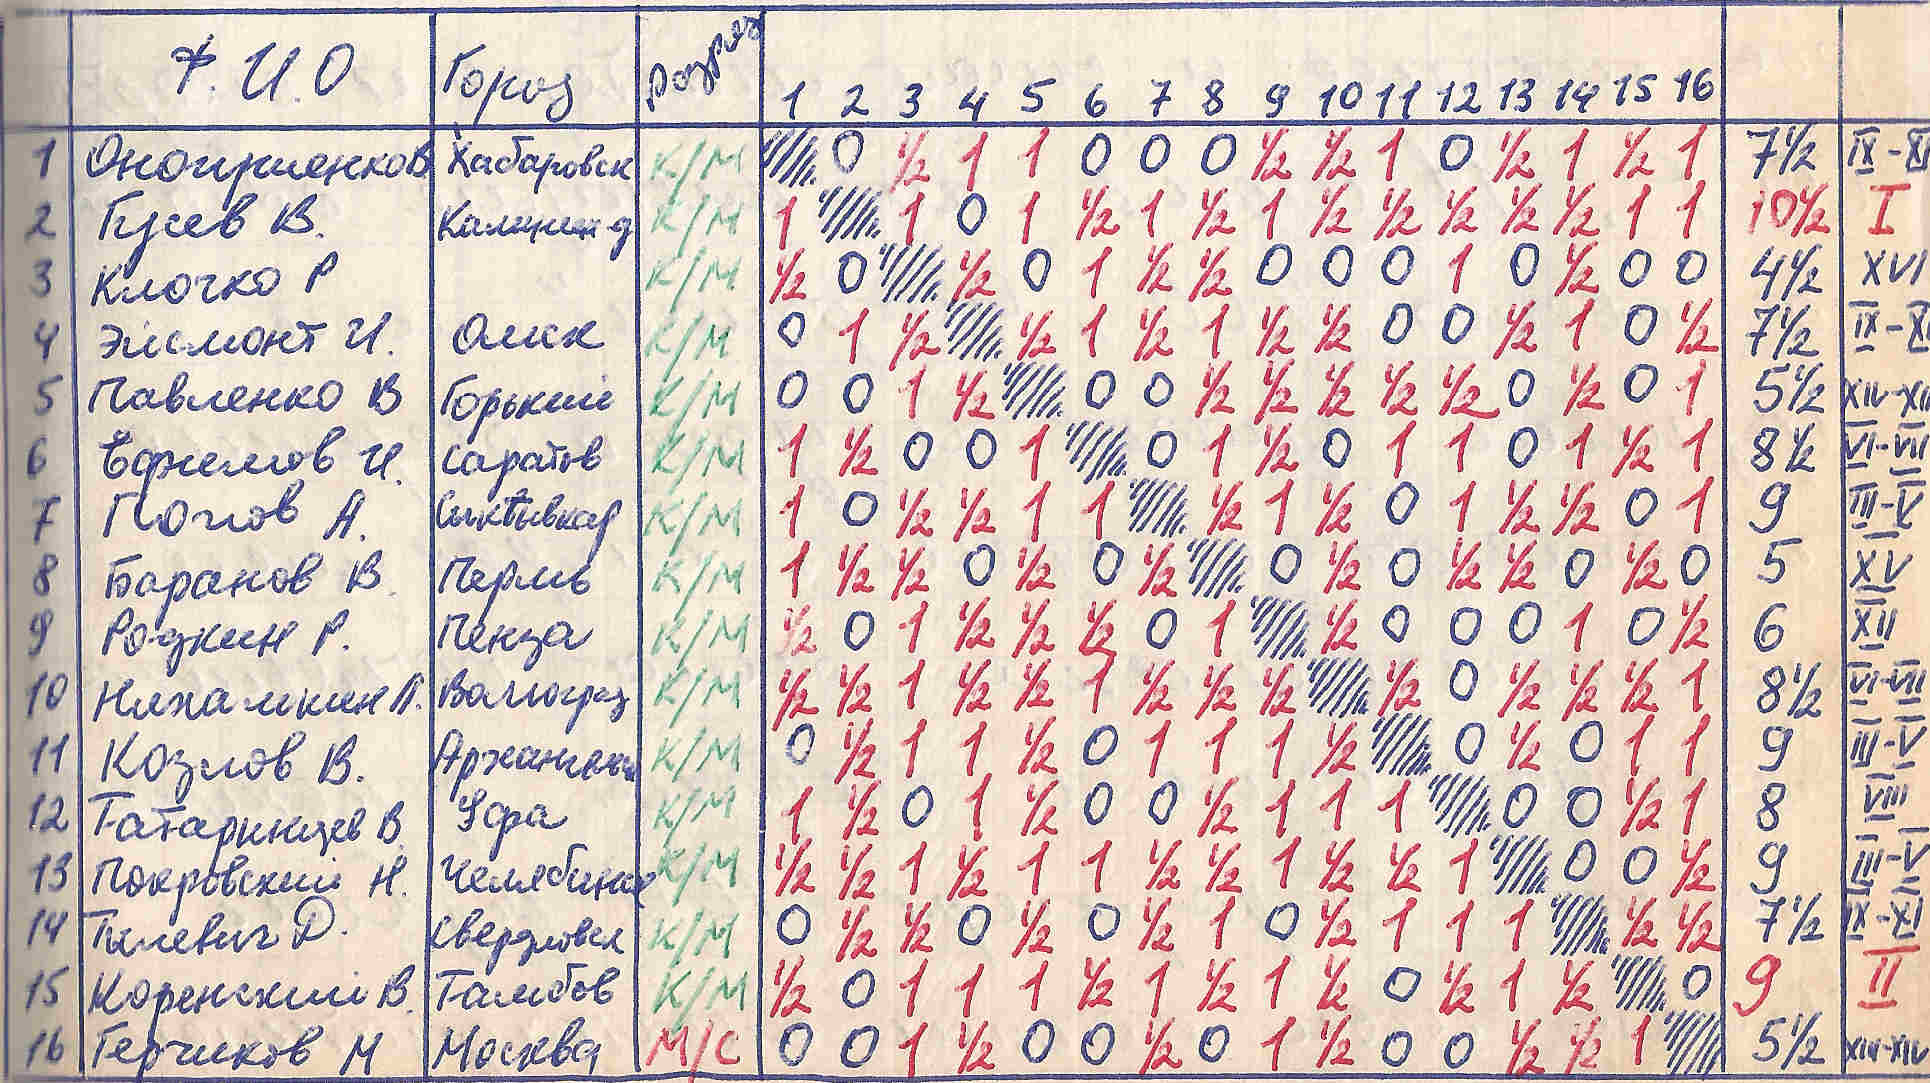 Ф. И. О Город Разряд 1 2 3 4 5 6 7 8 9 10 11 12 13 14 15 16
1 Оноприенко В Хабаровск К/М 0 ½ 1 1 0 0 0 ½ ½ 1 0 ½ 1 ½ 1 7½ IX-XI
2 Гусев В. Калинин-д К/М 1 1 0 1 ½ 1 ½ 1 ½ ½ ½ ½ ½ 1 1 10½ I
3 Клочко Р К/М ½ 0 ½ 0 1 ½ ½ 0 0 0 1 0 ½ 0 0 4½ XVI
4 Эйсмонт И. Омск К/М 0 1 ½ ½ 1 ½ 1 ½ ½ 0 0 ½ 1 0 ½ 7½ IX-X
5 Павленко В Горький К/М 0 0 1 ½ 0 0 ½ ½ ½ ½ ½ 0 ½ 0 1 5½
6 Ефимов И. Саратов К/М 1 ½ 0 0 1 0 1 ½ 0 1 1 0 1 ½ 1 8½ VI-VII
7 Попов А. Сыктывкар К/М 1 0 ½ ½ 1 1 ½ 1 ½ 0 1 ½ ½ 0 1 9 III-V
8 Баранов В. Пермь К/М 1 ½ ½ 0 ½ 0 ½ 0 ½ 0 ½ ½ 0 ½ 0 5 XV
9 Родкин Р. Пенза К/М ½ 0 1 ½ ½ ½ 0 1 ½ 0 0 0 1 0 ½ 6 XII
10 Волгоград К/М ½ ½ 1 ½ ½ 1 ½ ½ ½ ½ 0 ½ ½ ½ 1 8½ VI-VII
11 Козлов В. Архангельск К/М 0 ½ 1 1 ½ 0 1 1 1 ½ 0 ½ 0 1 1 9 III-V
12 Татаринцев В. Уфа К/М 1 ½ 0 1 ½ 0 0 ½ 1 1 1 0 0 ½ 1 8 VIII
13 Покровский Н. Челябинск К/М ½ ½ 1 ½ 1 1 ½ ½ 1 ½ ½ 1 0 0 ½ 9 III-V
14 Пилевич Д. Свердловск К/М 0 ½ ½ 0 ½ 0 ½ 1 0 ½ 1 1 1 ½ ½ 7½ IX-XI
15 Коренский В. Тамбов К/М ½ 0 1 1 1 ½ 1 ½ 1 ½ 0 ½ 1 ½ 0 9 II
16 Герчиков М Москва М/С 0 0 1 ½ 0 0 ½ 0 1 ½ 0 0 ½ ½ 1 5½ XIII-XIV